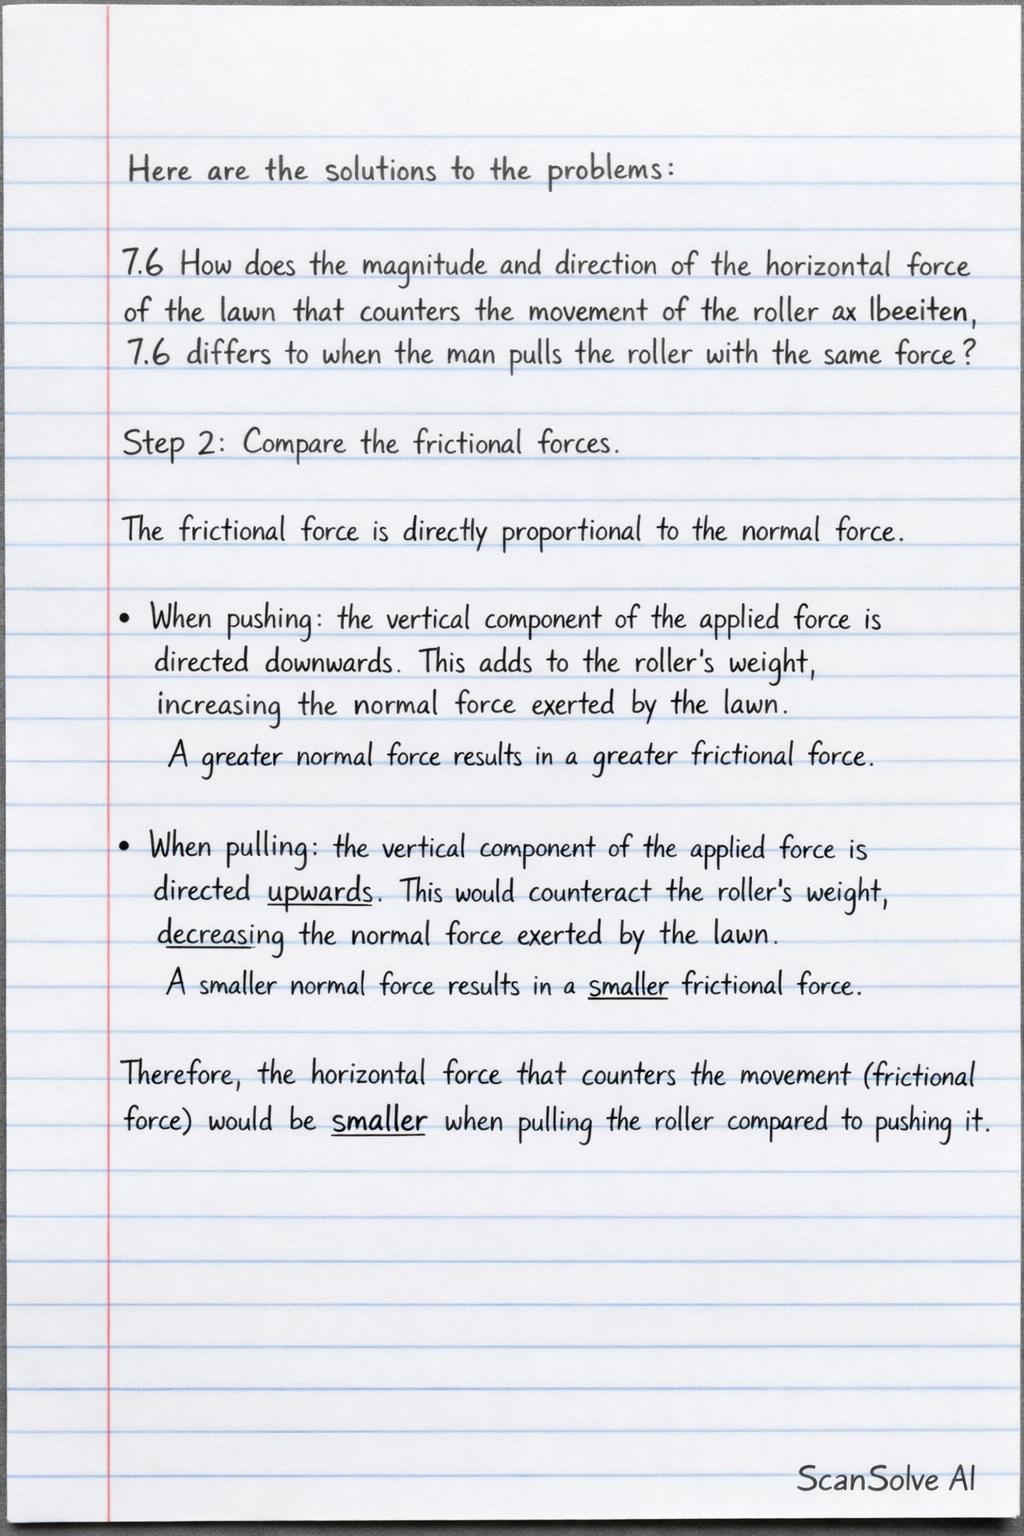 Here are the solutions to the problems:
7.6 How does the magnitude and direction of the horizontal force
of the lawn that counters the movement of the roller ax lbeeiten,
7.6 differs to when the man pulls the roller with the same force?
Step 2: Compare the frictional forces.
The frictional force is directly proportional to the normal force.
• When pushing: the vertical component of the applied force is
directed downwards. This adds to the roller's weight,
increasing the normal force exerted by the lawn.
A greater normal force results in a greater frictional force.
• When pulling: the vertical component of the applied force is
directed upwards. This would counteract the roller's weight,
decreasing the normal force exerted by the lawn.
A smaller normal force results in a smaller frictional force.
Therefore, the horizontal force that counters the movement (frictional
force) would be smaller when pulling the roller compared to pushing it.
ScanSolve AI